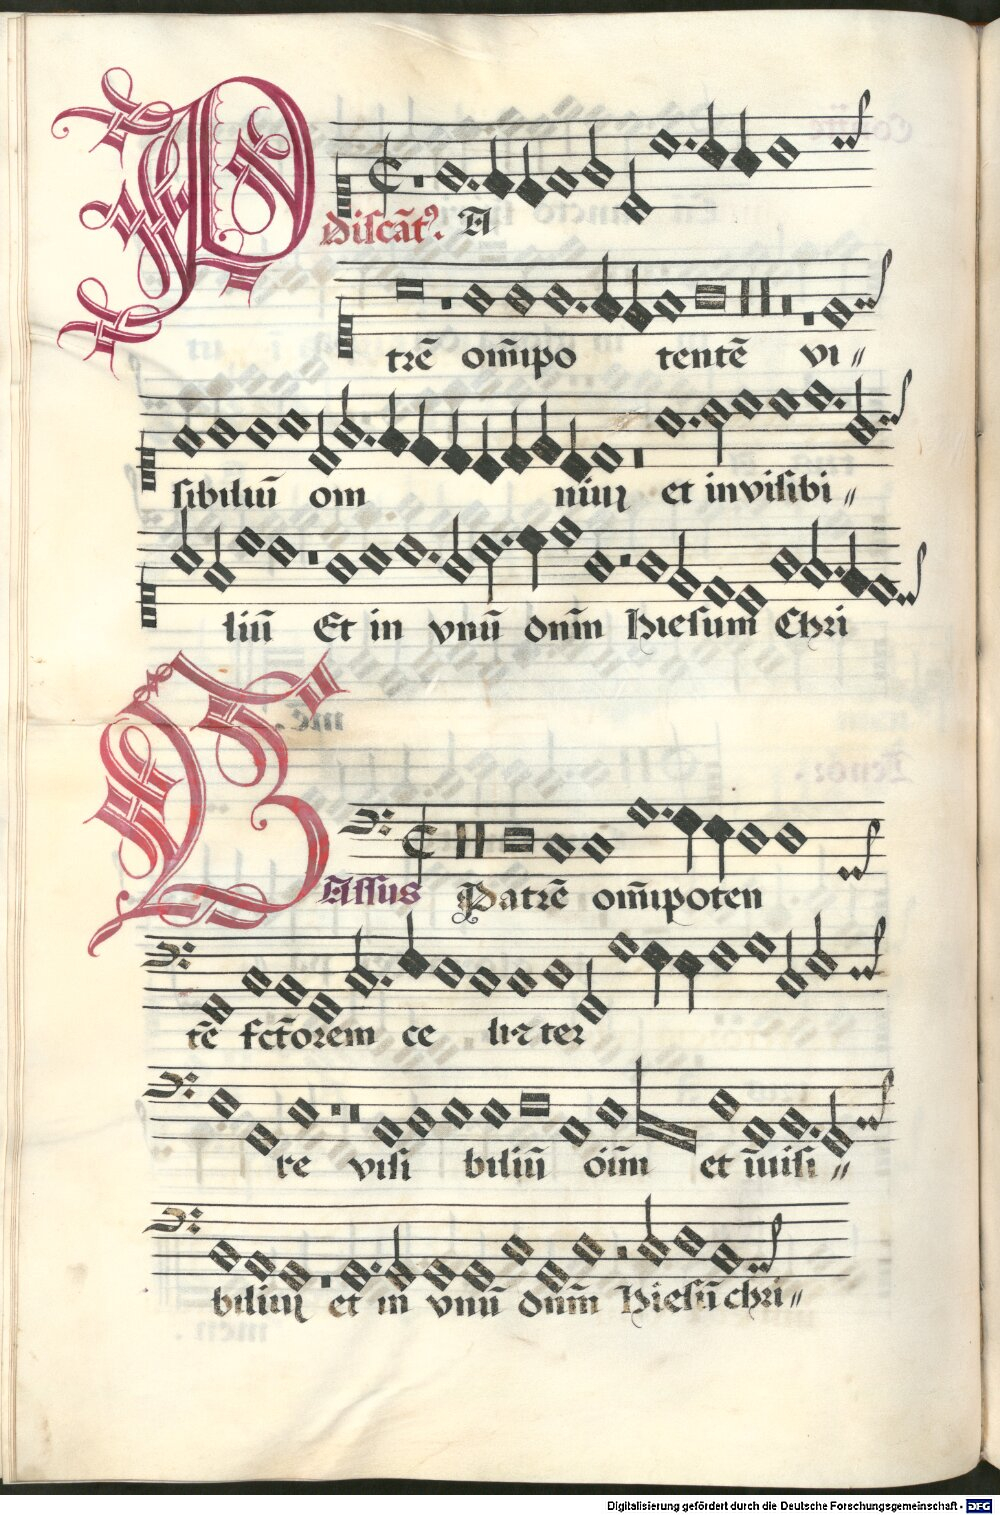 P
Discāt⁹. A
trē om̄ipo tentē vi〃
sibiliū om niuꝫ et invisibi〃
liū Et in vnū dnm̄ Hiesum Chri
B
Assus Patrē om̄ipoten
tē fctōrem ce li ⁊ ter
re visi biliū oīm et īuisi〃
biliuꝫ et in vnū dnm̄ Hiesū chri〃
Digitalisierung gefördert durch die Deutsche Forschungsgemeinschaft - DFG